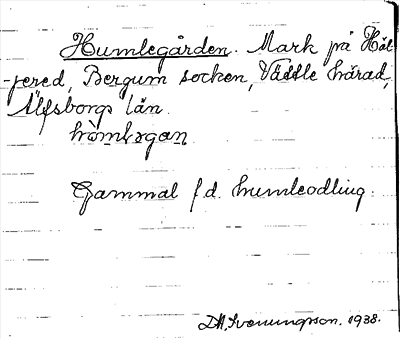 Humlegården. Mark på Häl-
-jered, Bergum socken, Vättle härad,
Älfsborgs län.
hòmləgan
Gammal f.d. humleodling.
D.A. Svenungsson. 1938.